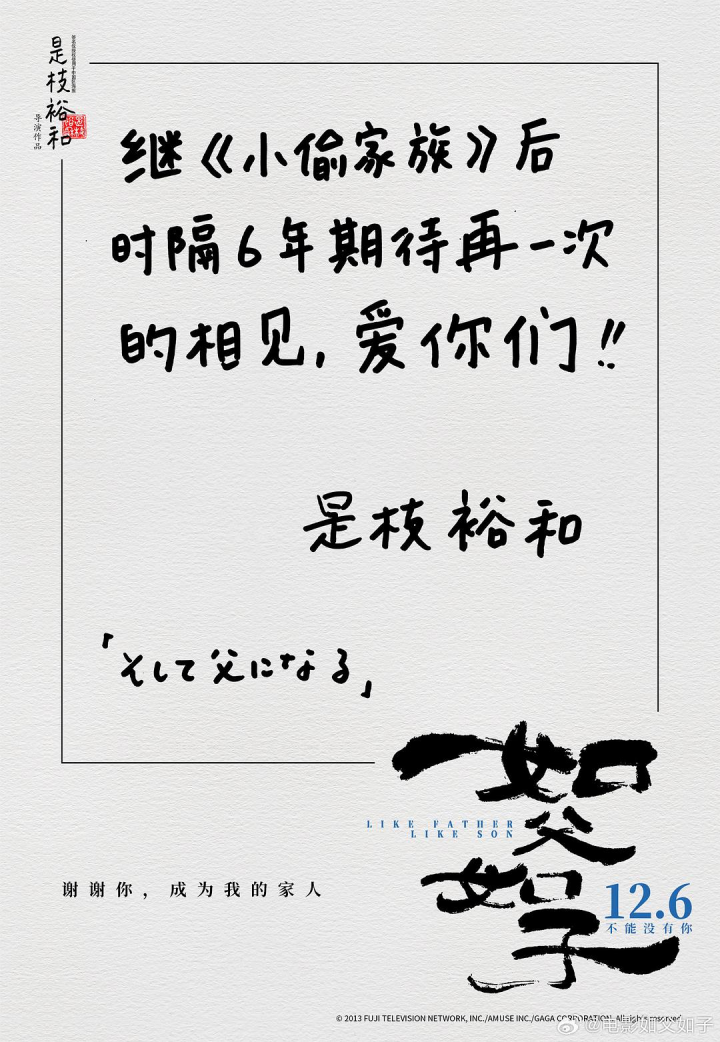 是枝裕和
导演作品
继《小偷家族》后
时隔6年期待再一次
的相见，爱你们!!
是枝裕和
「そして父になる」
如父如子
LIKE FATHER
LIKE SON
谢谢你，成为我的家人
12.6
不能没有你
© 2013 FUJI TELEVISION NETWORK, INC./AMUSE INC./GAGA CORPORATION. All rights reserved.
@电影如父如子